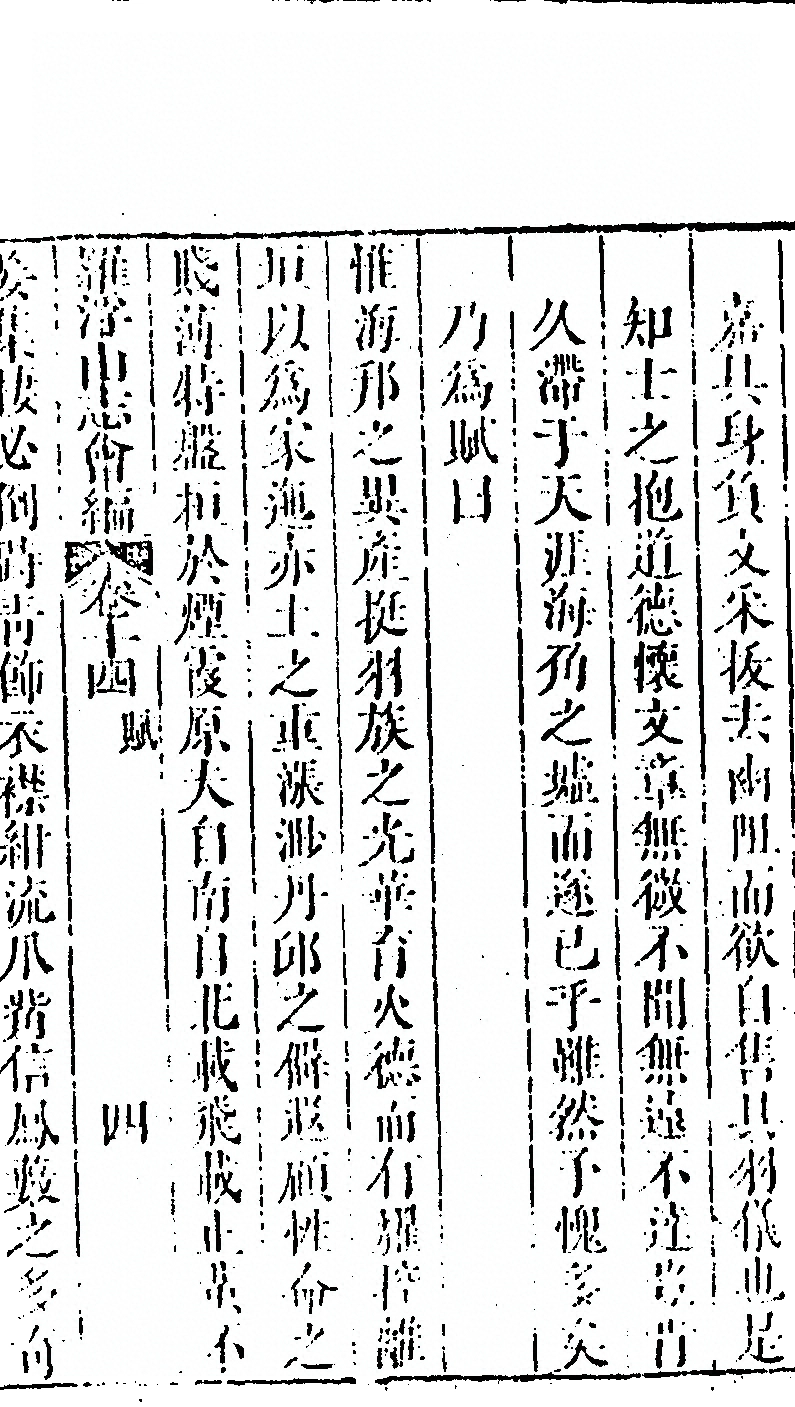 嘉其身負文采拔去幽阻而欲自售其羽儀也足
知士之抱道德懷文章無微不聞無遠不達豈肯
久滯于天涯海角之墟而遂已乎雖然予愧多矣
乃為賦曰
惟海邦之異產挺羽族之光華育火德而有耀控離
垣以為家迤赤土之重漲渺丹邱之僻遐顧性命之
賤薄特盤桓於煙霞原夫自南自北載飛載止
羅浮山志會編 卷十四 賦 四
集棲必倒時青飾衣襟紺流爪觜信鳳數之多